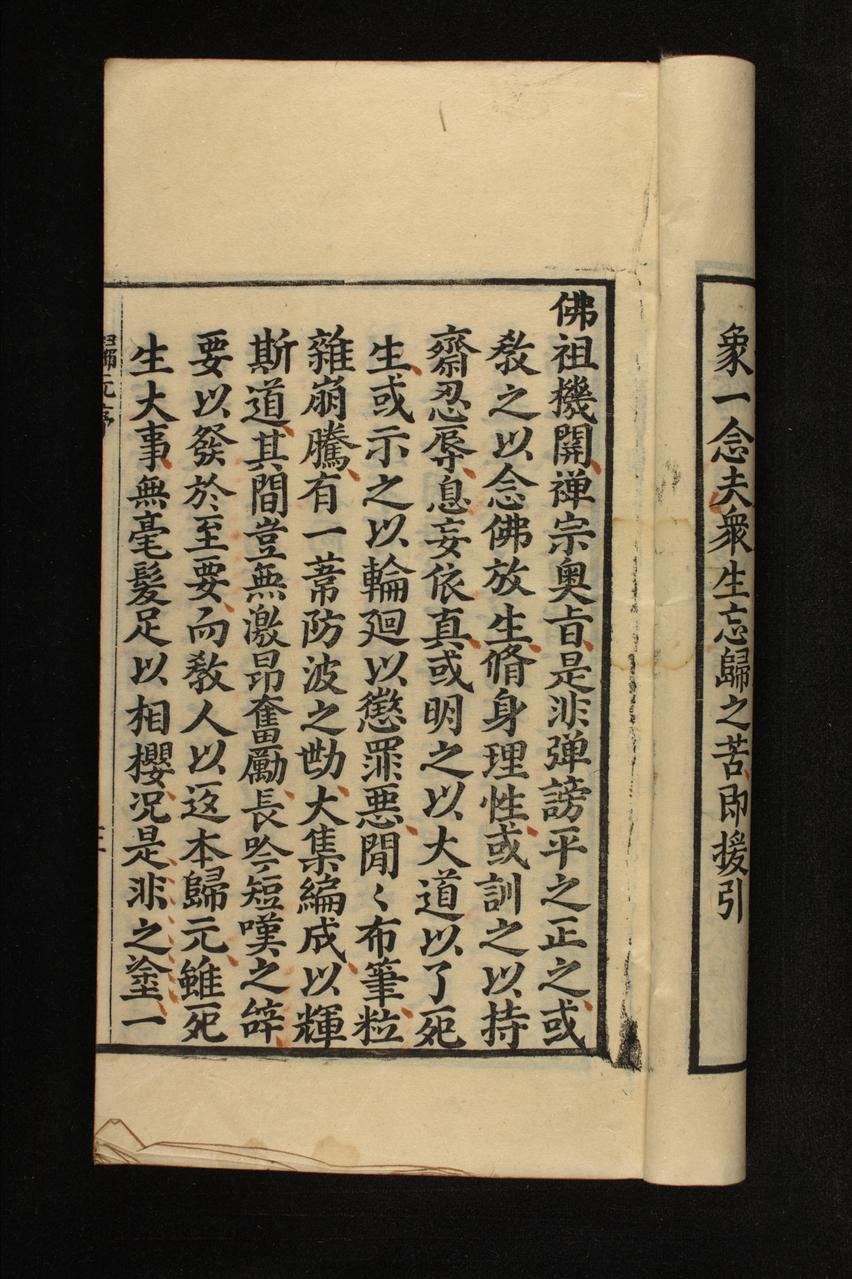 象一念夫衆生忘歸之苦即援引
佛祖機開禅宗奥旨是非弹謗平之正之或
教之以念佛放生脩身理性或訓之以持
齋忍辱息妄依真或明之以大道以了死
生或示之以輪廻以懲罪惡閒〻布筆粒
雜崩騰有一葦防波之勘大集編成以輝
斯道其間豈無激昂奮勵長吟短嘆之辝
要以發於至要而教人以返本歸元雖死
生大事無毫髮足以相櫻况是非之塗一
歸元序